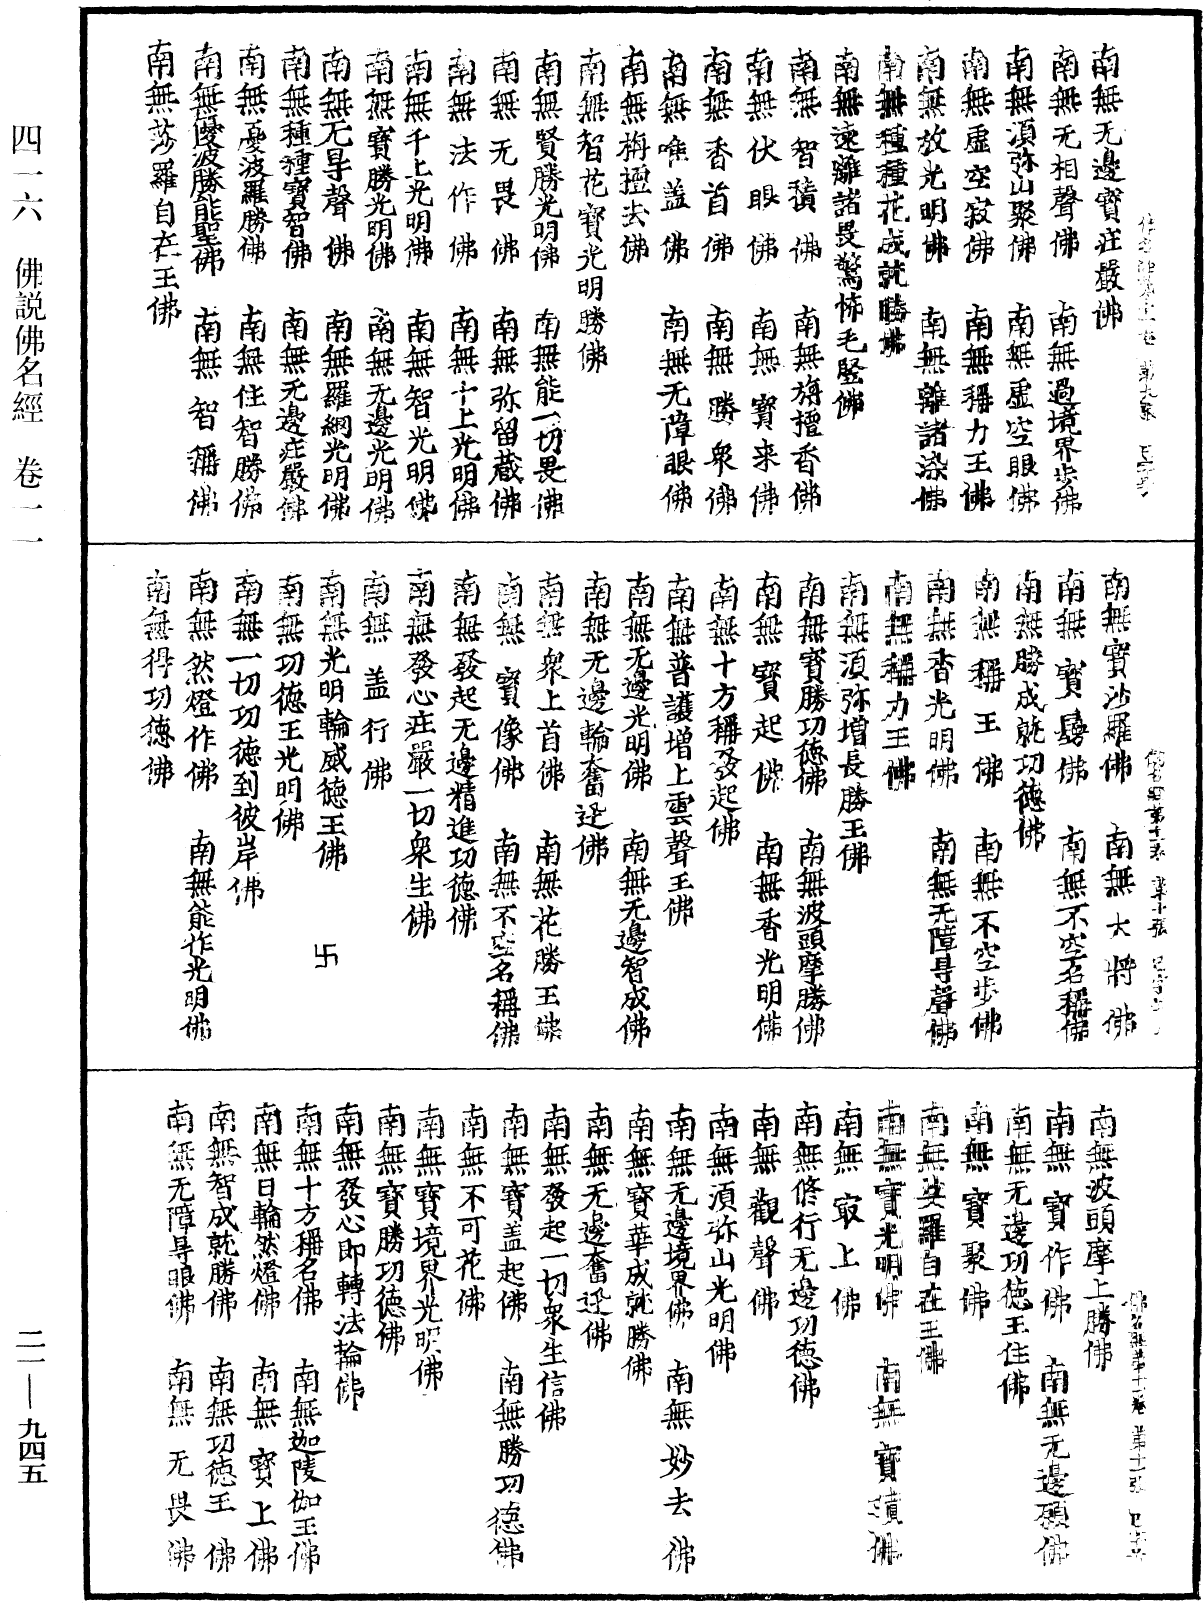 四一六　佛説佛名經　卷一一
南無无邊寶莊嚴佛
南無无相聲佛　南無過境界步佛
南無湏弥山聚佛　南無虛空眼佛
南無虛空寂佛　南無稱力王佛
南無放光明佛　南無離諸染佛
南無種種花成就勝佛
南無遠離諸畏驚怖毛竪佛
南無智積佛　南無旃檀香佛
南無伏眼佛　南無寶来佛
南無香首佛　南無勝衆佛
南無唯盖佛　南無无障眼佛
南無栴檀去佛
南無智花寶光明勝佛
南無賢勝光明佛　南無能一切畏佛
南無无畏佛　南無弥留藏佛
南無法作佛　南無十上光明佛
南無千上光明佛　南無智光明佛
南無寶勝光明佛　南無无邊光明佛
南無无㝵聲佛　南無羅網光明佛
南無種種寶智佛　南無无邊莊嚴佛
南無憂波羅勝佛　南無住智勝佛
南無優波勝能聖佛　南無智稱佛
南無莎羅自在王佛
南無寶沙羅佛　南無大將佛
南無寶勝佛　南無不空名稱佛
南無勝成就功德佛
南無稱王佛　南無不空步佛
南無香光明佛　南無无障㝵聲佛
南無稱力王佛
南無湏弥增長勝王佛
南無寶勝功德佛　南無波頭摩勝佛
南無寶起佛　南無香光明佛
南無十方稱發起佛
南無普護增上雲聲王佛
南無无邊光明佛　南無无邊智成佛
南無无邊輪奮迅佛
南無衆上首佛　南無花勝王佛
南無寶像佛　南無不空名稱佛
南無發起无邊精進功德佛
南無發心莊嚴一切衆生佛
南無盖行佛
南無光明輪威德王佛　卐
南無功德王光明佛
南無一切功德到彼岸佛
南無然燈作佛　南無能作光明佛
南無得功德佛
南無波頭摩上勝佛
南無寶作佛　南無无邊願佛
南無无邊功德王住佛
南無寶聚佛
南無娑羅自在王佛
南無寶光明佛　南無寶積佛
南無冣上佛
南無修行无邊功德佛
南無觀聲佛
南無湏弥山光明佛
南無无邊境界佛　南無妙去佛
南無寶華成就勝佛
南無无邊奮迅佛
南無發起一切衆生信佛
南無寶盖起佛　南無勝功德佛
南無不可花佛
南無寶境界光明佛
南無寶勝功德佛
南無發心即轉法輪佛
南無十方稱名佛　南無迦陵伽王佛
南無日輪然燈佛　南無寶上佛
南無智成就勝佛　南無功德王佛
南無无障㝵眼佛　南無无畏佛
二一—九四五